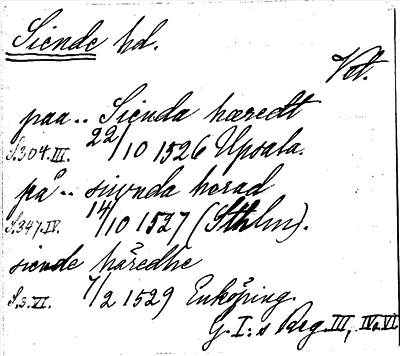 Siende hd.
Vet.
paa.. Sienda hæredt
S.304.III. 22/10 1526 Upsala.
på.. siunda herad
S.347.IV. 14/10 1527 (Sthlm).
siende häredhe
S.3.VI. 7/2 1529 Enköping.
G. I:s Reg. III, IV o. VI.